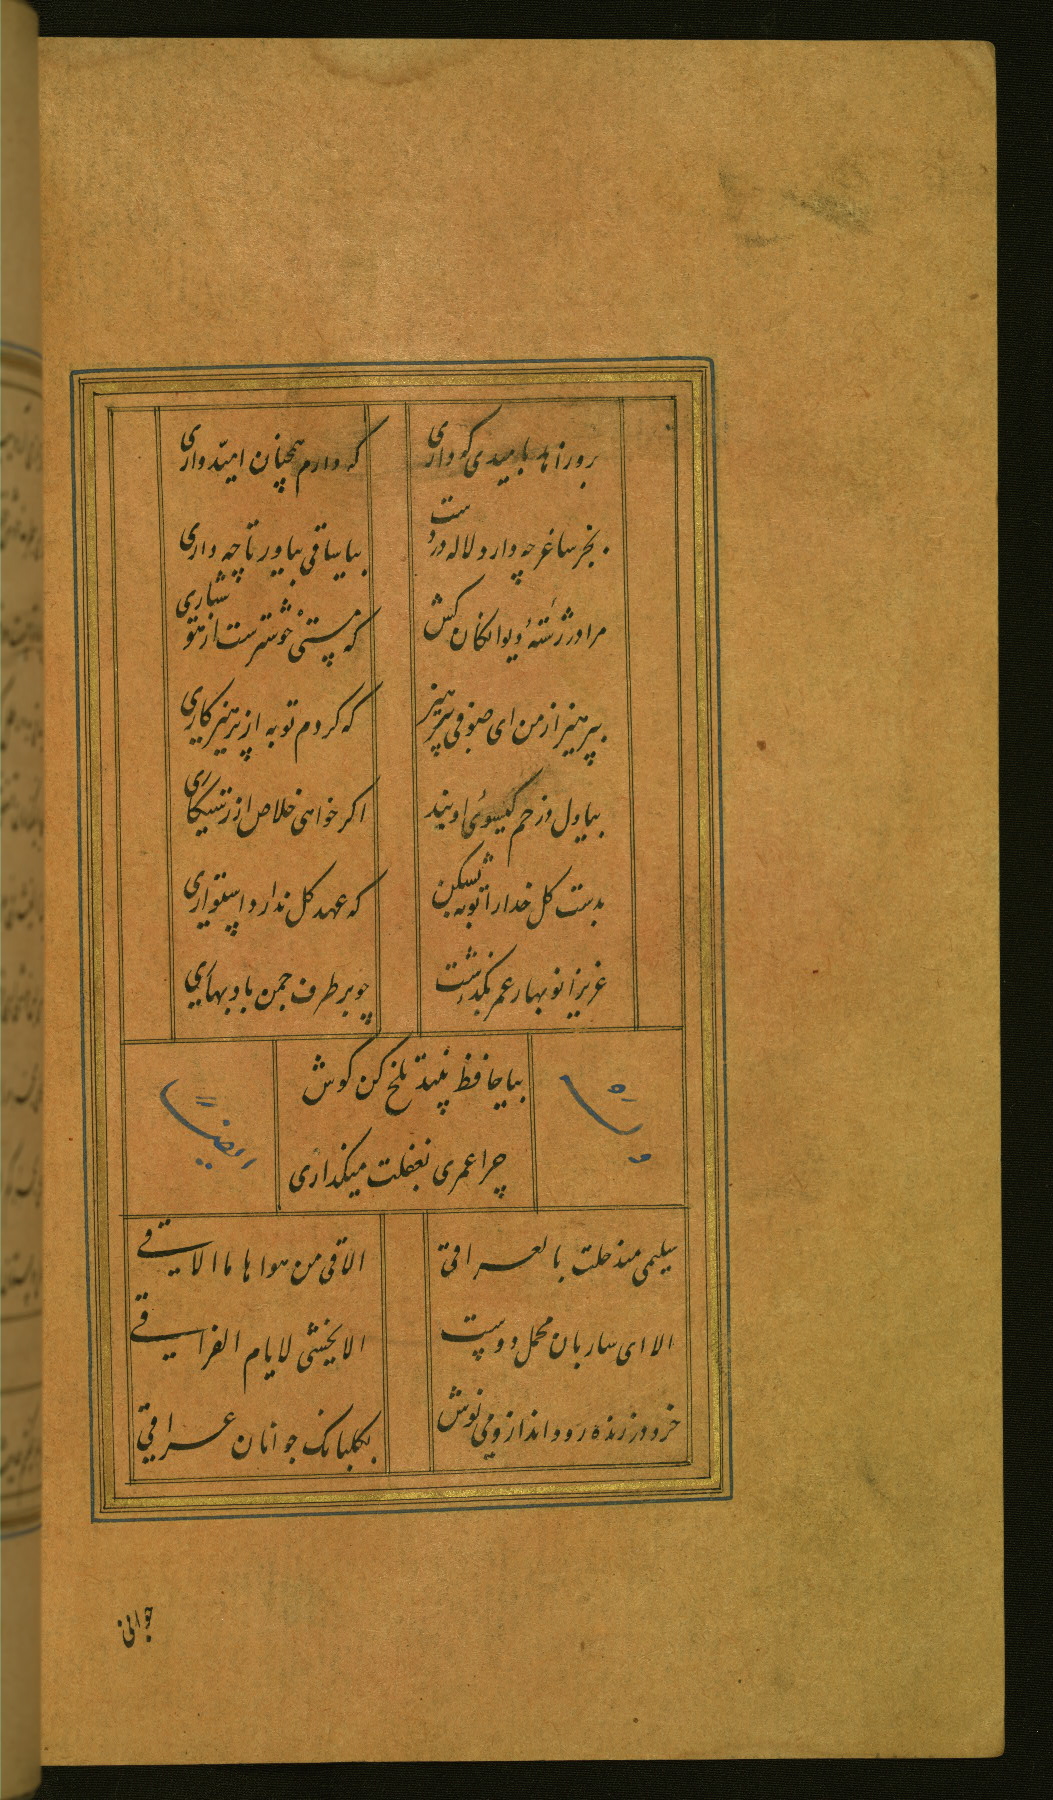 برو زاهد بامیدی که داری
که دارم همچنان امیدواری
بجز ساغر چه دارد لاله در دست
بیا ساقی بیاور تا چه داری
مرا در رشتهٔ دیوانکان کش
که مستی خوشترست از هوشیاری
بپرهیز از من ای صوفی بپرهیز
که کردم توبه از پرهیزکاری
بیا دل در خم کیسوی او بند
اکر خواهی خلاص از رستکاری
بدست کل خدا را توبه بشکن
که عهد کل ندارد استواری
عزیزا نوبهار عمر بکذشت
چو بر طرف چمن باد بهاری
بیا حافظ پند تلخ کن کوش
چرا عمری بغفلت میکذاری
وله ایضاً
سلیمی منذ حلت بالعراقی
الاقی من هواها ما الاقی
الا ای ساربان محمل دوست
الا یخشی لایام الفراقی
خرد در زنده رود انداز و می نوش
بکلبانک جوانان عراقی
جوانی